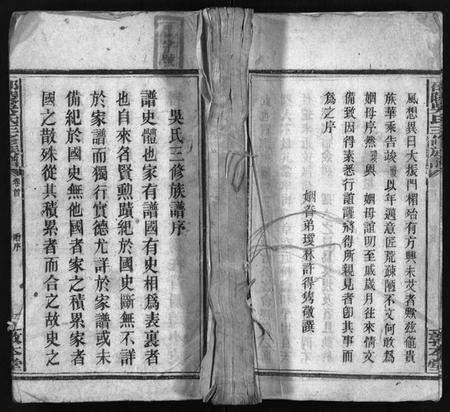 風想異日大振門楣哈有方興未艾者歟玆值貴
族華乘告竣以年邁意匠荒疎陋不文何敢為
姻母序然與姻母誼明至戚歲月往來情文
備致因得素悉行誼謹將得所親見者卽其事而
為之序
姻晚弟 許得 敬譔
吳氏三修族譜序
譜史體也家有譜國有史相為表裏者
也自來名賢勲蹟紀於國史斷無不詳
於家譜而獨行實德尤詳於家譜或未
備紀於國史無他國者家之積累家者
國之散殊從其積累者而合之故史之
卷首
附序